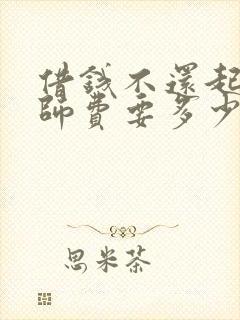 借錢不還起
師費要多少
思米茶